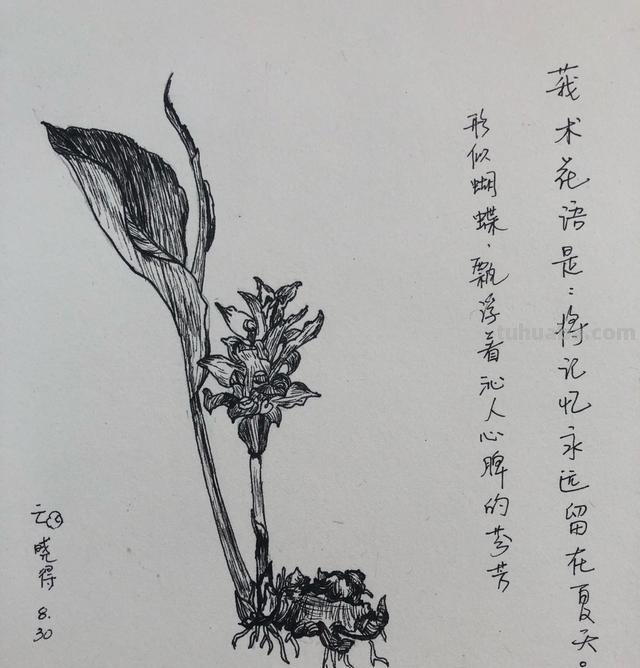 莪术花语是：将记忆永远留在夏天。
形似蝴蝶，飘浮着沁人心脾的芬芳
云
晓得
8.
30
tuhua
.com